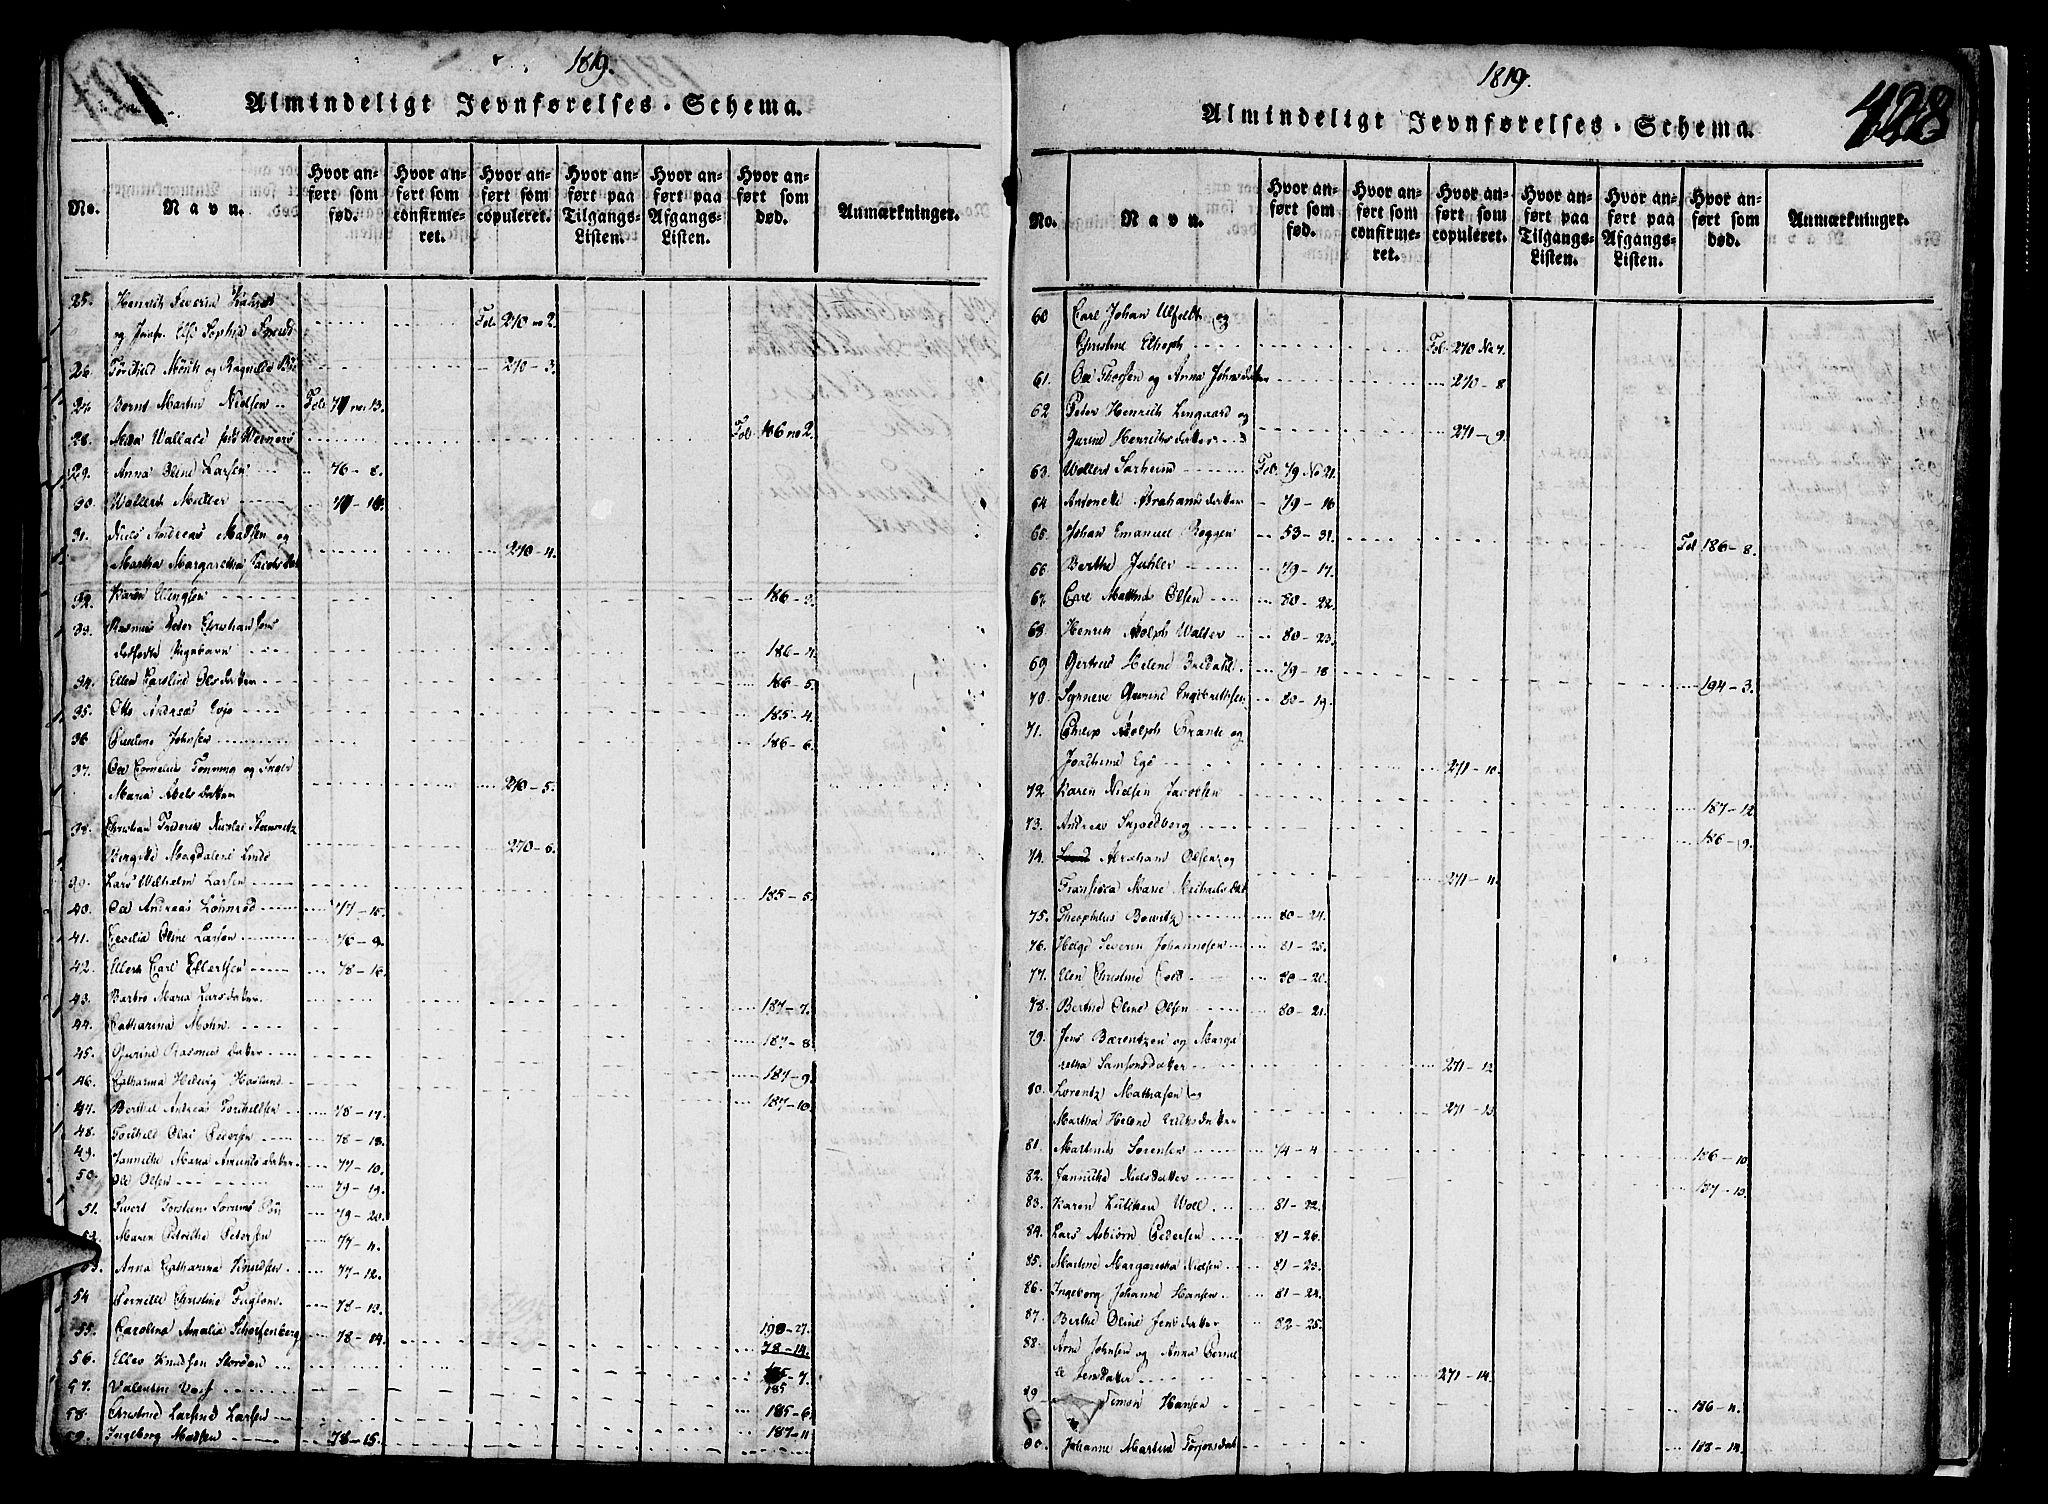 1819.
Almindeligt Jevnførelses-Schema.
No.
Navn.
Hvor anført som fød.
Hvor anført som confirmeret.
Hvor anført som copuleret.
Hvor anført paa Tilgangs-Listen.
Hvor anført paa Afgangs-Listen.
Hvor anført som død.
Anmærkninger.
25. Henrich Severin
og Jomf. Else Sophie Fol. 270 no 2.
26. Torkild og Ragnilde 270-3.
27. Bernt Martin Nielsen Fol. 77 no. 13.
28. Wallace Fol. 186 no 2.
29. Anna Oline Larsen 76-8.
30. Wollert Møller
31. Niels Andreas Madsen og
Martha Margaretha Jacobsdat 270-4.
32. Karen Ellengsen 186-3.
33. Rasmus Peter Christiansens
Pigebarn 186-4.
34. Ellen Karoline Olsdatter 186-5.
35. Otto Andreas 185-4.
36. Johnsen 186-6.
37. Ole Cornelius Tønning og Inger
Maria Abelsdatter 270-5.
38. Christian Frederik Nicolai
Bergitte Magdalene Linde 270-6.
39. Lars Wilhelm Larsen 185-5.
40. Ole Andreas Lønnrød 77-15.
41. Cecilia Oline Larsen 76-9.
42. Ellert Carl Ellertsen 78-16.
43. Barbro Maria Larsdatter. 187-7.
44. Catharina Mohn 187-8.
45. Gurine Rasmusdatter 187-9.
46. Catharina Hedevig Haslund 187-10.
47. Berthel Andreas Torkildsen 78-17.
48. Torkild Olai Pedersen 78-18.
49. Jannicke Maria Amundsdatter. 77-10.
50. Ole Olsen 79-19.
51. Sivert Torstein Lorens 79-20.
Maren Petrikke Petersen 77-11.
Anna Catharina Knudsen 77-12.
54 Pernille Christine 78-13.
55. Carolina Amalia Scharfenberg 78-14. 190-27.
78-14.
56. Elles Knudsen 185-7.
57. Valentin 185
58. Christine Larsen 185-6.
59. Ingeborg Madsen 78-15. 187-11
1819.
428
Almindeligt Jevnførelses-Schema.
No.
Navn.
Hvor anført som fød.
Hvor anført som confirmeret.
Hvor anført som copuleret.
Hvor anført paa Tilgangs-Listen.
Hvor anført paa Afgangs-Listen.
Hvor anført som død.
Anmærkninger.
60 Carl Johan Ulfeldt og
Christine Fol. 270 No 7.
61. Ole Thorsen og Anna Johnsdatter 270-8
62 Peter Henrich Lengaard og
Gurine Henrichsdatter 271-9.
63. Wollert Fol. 79 No 21.
64 Antonette Abrahamsdatter 79-16
65. Johan Emanuel Roggen 53-32. Fol 186-8.
66 Berthe Juhler 79-17.
67. Carl Mathias Olsen 80-22.
68. Henrich Adolph Walter 80-23.
69 Gertrud Helene Bredahl. 79-18 194-3.
70. Synneve Gurine Engebrethsen 80-19.
71. Philip Adolph og
Joachima 271-10.
72. Karen Nielsen Jacobsen 187-12
73. Andreas Skioldborg 186-9.
74. Abraham Olsen og
Fransisca Marie Michaelsdat 271-11.
75. Theophilus 80-24.
76. Helge Severin Johannesen 81-25.
77. Elen Christine 80-20.
78. Berthe Oline Olsen 80-21.
79. Jens Bærentzen og Marga
retha Samsonsdatter 271-12
80. Lorentz Mathiasen og
Martha Helene Eriksdatter 271-13.
81. Martinus Sørensen 74-4 186-10
82. Jannicka Nielsdatter 187-13.
83. Karen Lutiken Woll 81-22.
84. Lars Asbiørn Pedersen 81-26.
85. Martine Margaretha Nielsen 81-23.
86. Ingeborg Johanne Hansen. 81-24.
87. Berthe Oline Jensdatter 82-25.
88. Arne Johnsen og Anna Pernil
le Jensdatter 271-14.
89 Simon Hansen 186-11.
90. Johanne Martine 188-14.